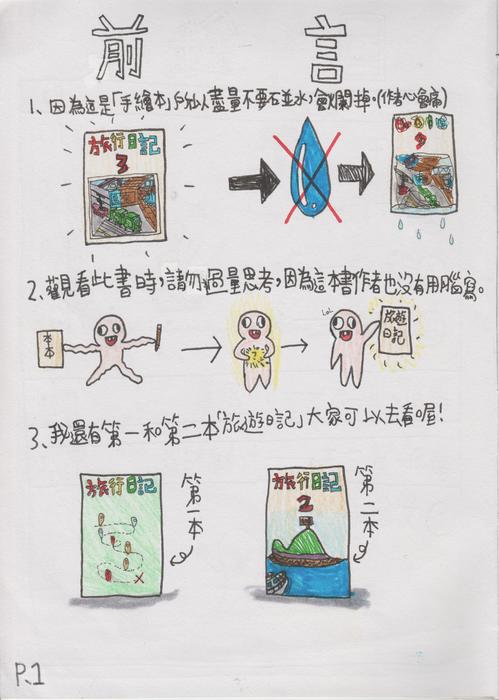 前言
1、因為這是「手繪本」所以盡量不要碰水,會爛掉。(作者心會痛)
旅行日記
3
2、觀看此書時,請勿過量思考,因為這本書作者也沒有用腦寫。
本本
?
LOL
旅遊
日記
3、我還有第一和第二本「旅遊日記」大家可以去看喔!
旅行日記
第一本
旅行日記
2
第二本
P.1